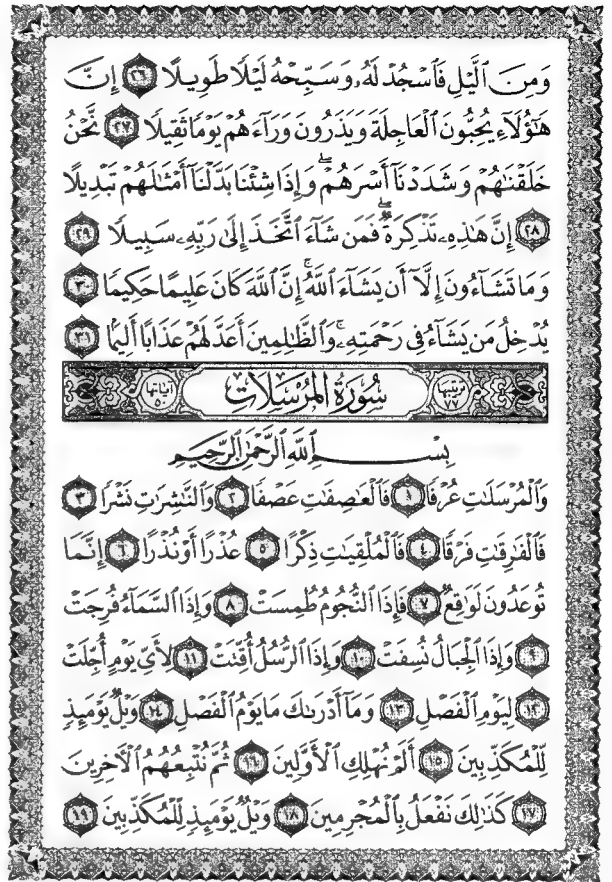 وَمِنَ ٱلَّيۡلِ فَٱسۡجُدۡ لَهُۥ وَسَبِّحۡهُ لَيۡلٗا طَوِيلًا ٢٦ إِنَّ
هَٰٓؤُلَآءِ يُحِبُّونَ ٱلۡعَاجِلَةَ وَيَذَرُونَ وَرَآءَهُمۡ يَوۡمٗا ثَقِيلٗا ٢٧ نَّحۡنُ
خَلَقۡنَٰهُمۡ وَشَدَدۡنَآ أَسۡرَهُمۡۖ وَإِذَا شِئۡنَا بَدَّلۡنَآ أَمۡثَٰلَهُمۡ تَبۡدِيلًا
٢٨ إِنَّ هَٰذِهِۦ تَذۡكِرَةٞۖ فَمَن شَآءَ ٱتَّخَذَ إِلَىٰ رَبِّهِۦ سَبِيلٗا ٢٩
وَمَا تَشَآءُونَ إِلَّآ أَن يَشَآءَ ٱللَّهُۚ إِنَّ ٱللَّهَ كَانَ عَلِيمًا حَكِيمٗا ٣٠
يُدۡخِلُ مَن يَشَآءُ فِي رَحۡمَتِهِۦۚ وَٱلظَّٰلِمِينَ أَعَدَّ لَهُمۡ عَذَابًا أَلِيمَۢا ٣١
ترتيبها ٧٧ سُورَةُ المُرۡسَلَاتِ آياتها ٥٠
بِسۡمِ ٱللَّهِ ٱلرَّحۡمَٰنِ ٱلرَّحِيمِ
وَٱلۡمُرۡسَلَٰتِ عُرۡفٗا ١ فَٱلۡعَٰصِفَٰتِ عَصۡفٗا ٢ وَٱلنَّٰشِرَٰتِ نَشۡرٗا ٣
فَٱلۡفَٰرِقَٰتِ فَرۡقٗا ٤ فَٱلۡمُلۡقِيَٰتِ ذِكۡرًا ٥ عُذۡرًا أَوۡ نُذۡرًا ٦ إِنَّمَا
تُوعَدُونَ لَوَٰقِعٞ ٧ فَإِذَا ٱلنُّجُومُ طُمِسَتۡ ٨ وَإِذَا ٱلسَّمَآءُ فُرِجَتۡ
٩ وَإِذَا ٱلۡجِبَالُ نُسِفَتۡ ١٠ وَإِذَا ٱلرُّسُلُ أُقِّتَتۡ ١١ لِأَيِّ يَوۡمٍ أُجِّلَتۡ
١٢ لِيَوۡمِ ٱلۡفَصۡلِ ١٣ وَمَآ أَدۡرَىٰكَ مَا يَوۡمُ ٱلۡفَصۡلِ ١٤ وَيۡلٞ يَوۡمَئِذٖ
لِّلۡمُكَذِّبِينَ ١٥ أَلَمۡ نُهۡلِكِ ٱلۡأَوَّلِينَ ١٦ ثُمَّ نُتۡبِعُهُمُ ٱلۡأٓخِرِينَ
١٧ كَذَٰلِكَ نَفۡعَلُ بِٱلۡمُجۡرِمِينَ ١٨ وَيۡلٞ يَوۡمَئِذٖ لِّلۡمُكَذِّبِينَ ١٩